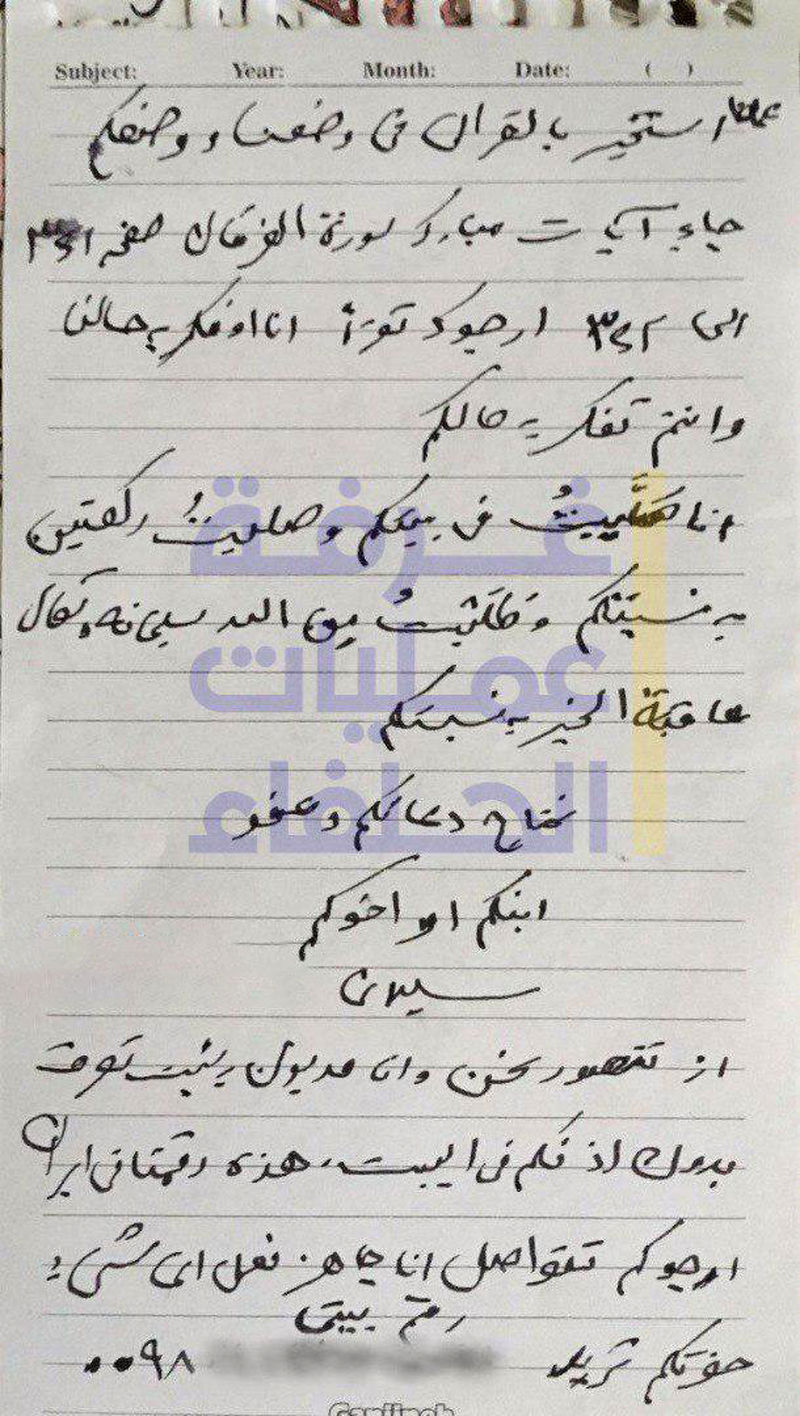 Subject: Year: Month: Date: ( )
استخير بالقرآن في وضعنا و وضعكم
جاء آيات مبارك سورة الفرقان صفحه ٣٦١
الى ٣٦٢ ارجوك تقرأ انا افكر به حالنا
وانتم تفكر به حالكم
انا صَلَّيتُ في بيتكم وصليتُ ركعتين
به نسبتكم وَطَلَبتُ من الله سبحانه وتعال
عاقبة الخير به نسبتكم
نحتاج دعائكم وعفو
ابنكم او اخوكم
سليماني
نحن وانا مديون تعرف
بدون اذنكم في البيت، هذه رقمنا في ايران
ارجوكم تتواصل انا جاهز نفعل اي شيء
رقم بيتي
حضرتكم تريد
٠٠٩٨
غرفة
عمليات
الحلفاء
Ganjineh